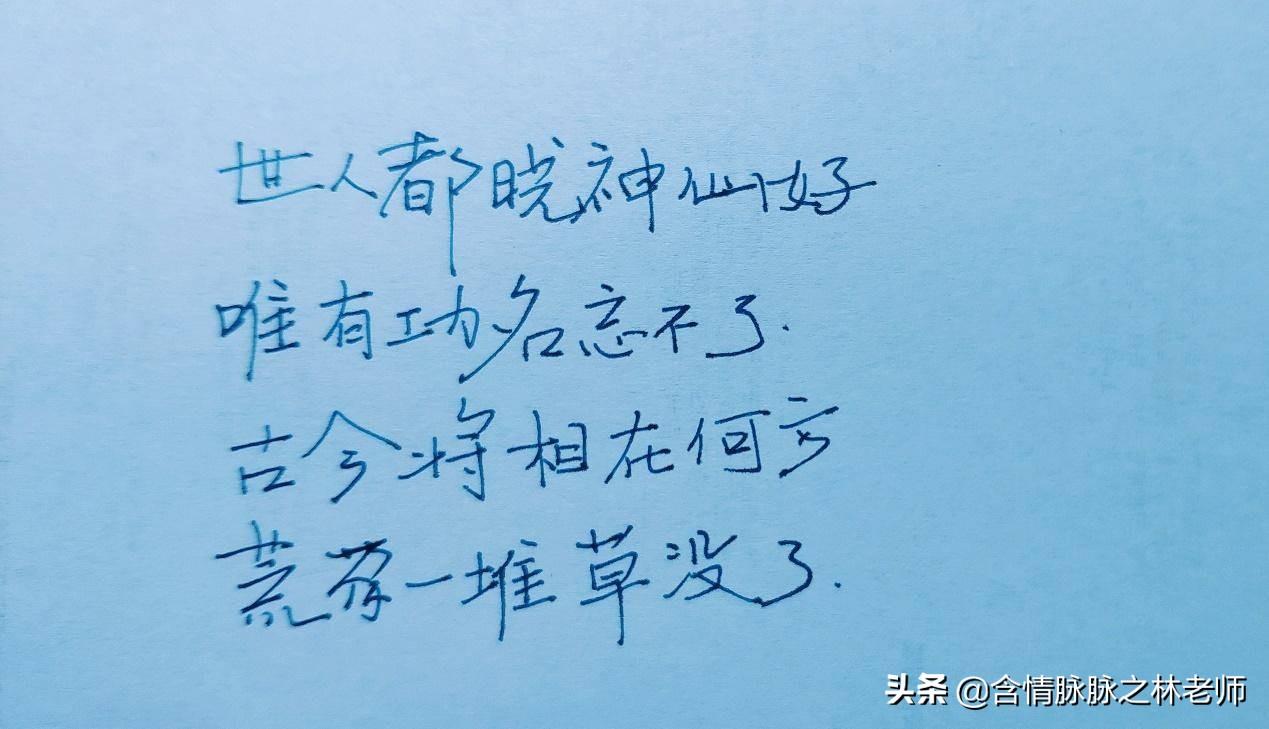 世人都晓神仙好
唯有功名忘不了.
古今将相在何方
荒一堆草没了.
头条 @含情脉脉之林老师